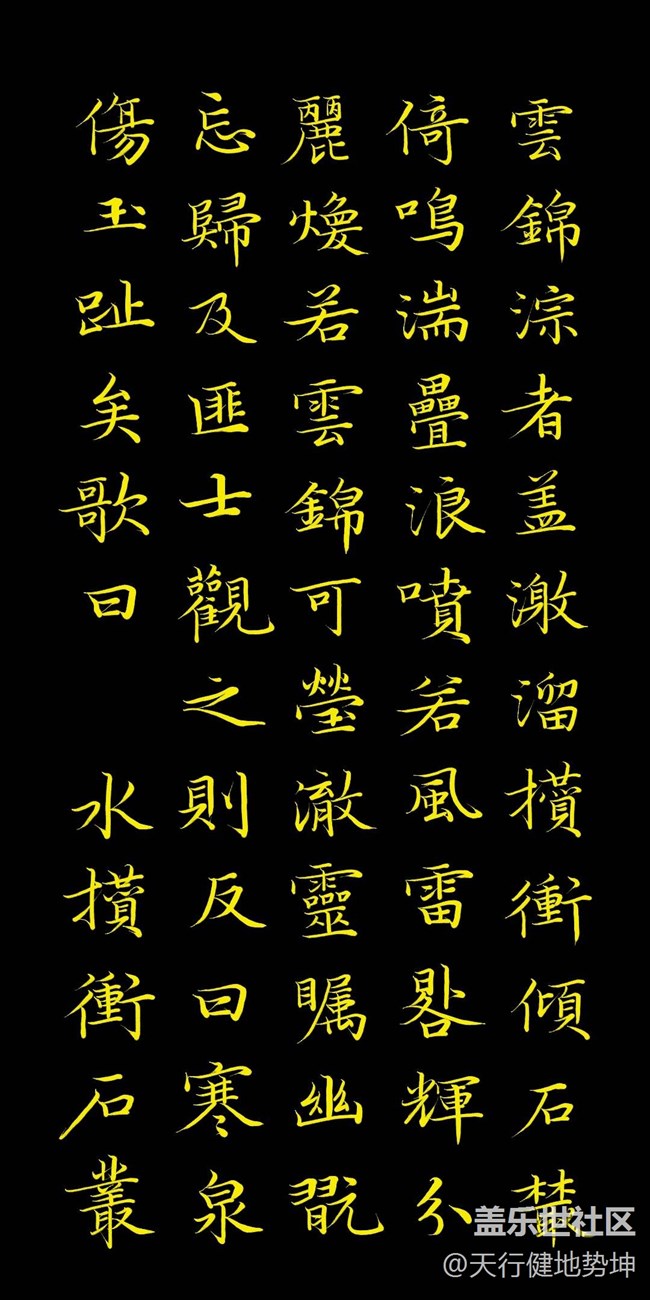 雲錦淙者盖激溜攢衝傾石叢
倚鳴湍疊浪噴若風雷晷輝分
麗煥若雲錦可瑩澈靈矚幽翫
忘歸及匪士觀之則反曰寒泉
傷玉趾矣歌曰 水攢衝石叢
盖乐世社区
@天行健地势坤